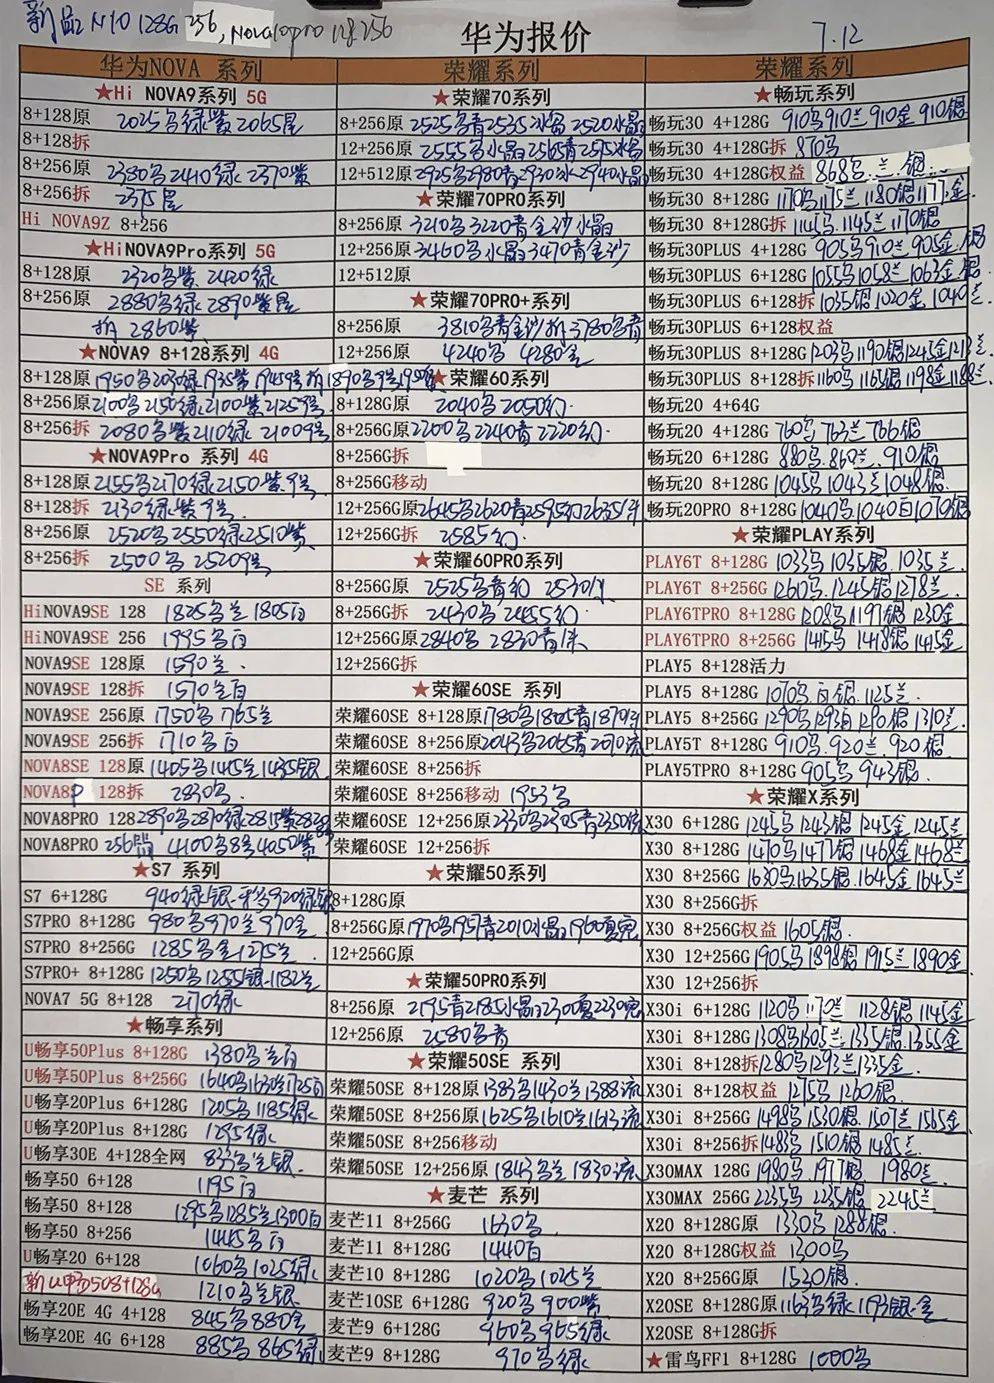 新品 N10 128G 256, Nova10pro 128 256
华为报价
7.12
华为NOVA 系列
★Hi NOVA9系列 5G
8+128原 2025乌绿紫2065星
8+128拆
8+256原 2380乌2410绿2370紫
8+256拆 2375星
Hi NOVA9Z 8+256
★HiNOVA9Pro系列 5G
8+128原 2320乌紫 2420绿
8+256原 2880乌绿2890紫星
拆 2860紫
★NOVA9 8+128系列 4G
8+128原
8+256原 2100乌2150绿2100紫2125号
8+256拆 2080乌紫2110绿2100号
★NOVA9Pro 系列 4G
8+128原 2155乌2170绿2150紫.号
8+128拆 2130绿紫.号
8+256原 2520乌2550绿2510紫
8+256拆 2500乌2520号
SE 系列
HiNOVA9SE 128 1825乌兰1805白
HiNOVA9SE 256 1995乌白
NOVA9SE 128原 1590兰.
NOVA9SE 128拆 1570兰白
NOVA9SE 256原 1750乌1765兰
NOVA9SE 256拆 1710乌白
NOVA8SE 128原 1405乌1445兰1435银
NOVA8P 128拆 2830乌.
NOVA8PRO 128 2890乌2870绿2815紫
NOVA8PRO 256 4100乌 4050紫
★S7 系列
S7 6+128G 940绿银 920绿
S7PRO 8+128G 980乌970兰970金
S7PRO 8+256G 1285乌金1275兰
S7PRO+ 8+128G 1250乌1255银1182兰
NOVA7 5G 8+128 2170绿
★畅享系列
U畅享50Plus 8+128G 1380乌兰白
U畅享50Plus 8+256G 1640乌1630兰1725白
U畅享20Plus 6+128G 1205乌1185绿
U畅享20Plus 8+128G 1295绿
U畅享30E 4+128全网 833乌兰银.
畅享50 6+128 1195白
畅享50 8+128 1295乌1285兰1300白
畅享50 8+256 1445乌白
U畅享20 6+128 1060乌1025绿
新U畅50 8+128G 1210乌兰银
畅享20E 4G 4+128 845乌880金
畅享20E 4G 6+128 885乌865绿
荣耀系列
★荣耀70系列
8+256原 2525乌青2535冰岛2520水晶
12+256原 2555乌水晶2565青2575冰岛
12+512原 2925乌2980青2930冰2940水晶
★荣耀70PRO系列
8+256原 3210乌3220青金沙水晶
12+256原 3460乌水晶3470青金沙
12+512原
★荣耀70PRO+系列
8+256原 3810乌青金沙拆3780乌青
12+256原 4240乌 4280金
★荣耀60系列
8+128G原 2040乌2050幻.
8+256G原 2200乌2240青2220幻.
8+256G拆
8+256G移动
12+256G原 2645乌2620青2595幻2635
12+256G拆 2585幻.
★荣耀60PRO系列
8+256G原 2525乌青幻 2530
8+256G拆 2430乌2455幻
12+256G原 2840乌 2830青
12+256G拆
★荣耀60SE 系列
荣耀60SE 8+128原 1780乌1805青1870流
荣耀60SE 8+256原 2043乌2055青2070流
荣耀60SE 8+256拆
荣耀60SE 8+256移动 1953乌
荣耀60SE 12+256原 2330乌2305青2350流
荣耀60SE 12+256拆
★荣耀50系列
8+128G原
8+256G原 1970乌1957青2010水晶1960夏宽
12+256G原
★荣耀50PRO系列
8+256原 2195青2185水晶2300夏2230宽
12+256原 2580乌青
★荣耀50SE 系列
荣耀50SE 8+128原 1383乌1430兰1388流
荣耀50SE 8+256原 1625乌1610兰1613流
荣耀50SE 8+256移动
荣耀50SE 12+256原 1843乌兰 1830流
★麦芒 系列
麦芒11 8+256G 1630乌
麦芒11 8+128G 1440白
麦芒10 8+128G 1020乌1025兰
麦芒10SE 6+128G 920乌 900紫
麦芒9 6+128G 960乌 965绿
麦芒9 8+128G 970乌绿
荣耀系列
★畅玩系列
畅玩30 4+128G 910乌910兰 910金 910银
畅玩30 4+128G拆 870乌
畅玩30 4+128G权益 868乌.兰.银.
畅玩30 8+128G 1170乌1175兰1180银1177金.
畅玩30 8+128G拆 1145乌 1145兰 1170银
畅玩30PLUS 4+128G 905乌910兰 905金.银
畅玩30PLUS 6+128G 1055乌1058兰1063金.银
畅玩30PLUS 6+128拆 1035银1020金1040兰
畅玩30PLUS 6+128权益
畅玩30PLUS 8+128G 1203乌1190银1245金1213兰
畅玩30PLUS 8+128拆 1160乌1165银1198金1188兰
畅玩20 4+64G
畅玩20 4+128G 760乌 763兰 766银
畅玩20 6+128G 880乌.860兰.910银
畅玩20 8+128G 1045乌 1043兰1048银.
畅玩20PRO 8+128G 1040乌1040白1070银
★荣耀PLAY系列
PLAY6T 8+128G 1033乌1035银.1035兰.
PLAY6T 8+256G 1260乌.1245银1278兰.
PLAY6TPRO 8+128G 1208乌1197银1230金
PLAY6TPRO 8+256G 1415乌1418银1415金
PLAY5 8+128活力
PLAY5 8+128G 1070乌白银.1125兰.
PLAY5 8+256G 1290乌1293白1290银1310兰.
PLAY5T 8+128G 910乌.920兰 920银.
PLAY5TPRO 8+128G 905乌 943银.
★荣耀X系列
X30 6+128G 1245乌 1243银 1245金 1245兰
X30 8+128G 1470乌 1477银 1468金 1468兰
X30 8+256G 1630乌.1635银.1645金 1645兰
X30 8+256G拆
X30 8+256G权益 1605银.
X30 12+256G 1905乌1898银1915兰1890金.
X30 12+256拆
X30i 6+128G 1120乌1170兰 1128银 1145金
X30i 8+128G 1308乌1305兰.1335银.1355金
X30i 8+128拆 1280乌1293兰1335金.
X30i 8+128权益 1275乌 1260银.
X30i 8+256G 1498乌 1530银.1507兰 1565金
X30i 8+256拆 1483乌 1510银 1485兰.
X30MAX 128G 1980乌.1977银. 1980兰.
X30MAX 256G 2235乌 2235银 2245兰
X20 8+128G原 1330乌 1288银.
X20 8+128G权益 1300乌
X20 8+256G原 1530银.
X20SE 8+128G原 1163乌绿 1193银.金
X20SE 8+128G拆
★雷鸟FF1 8+128G 1000乌